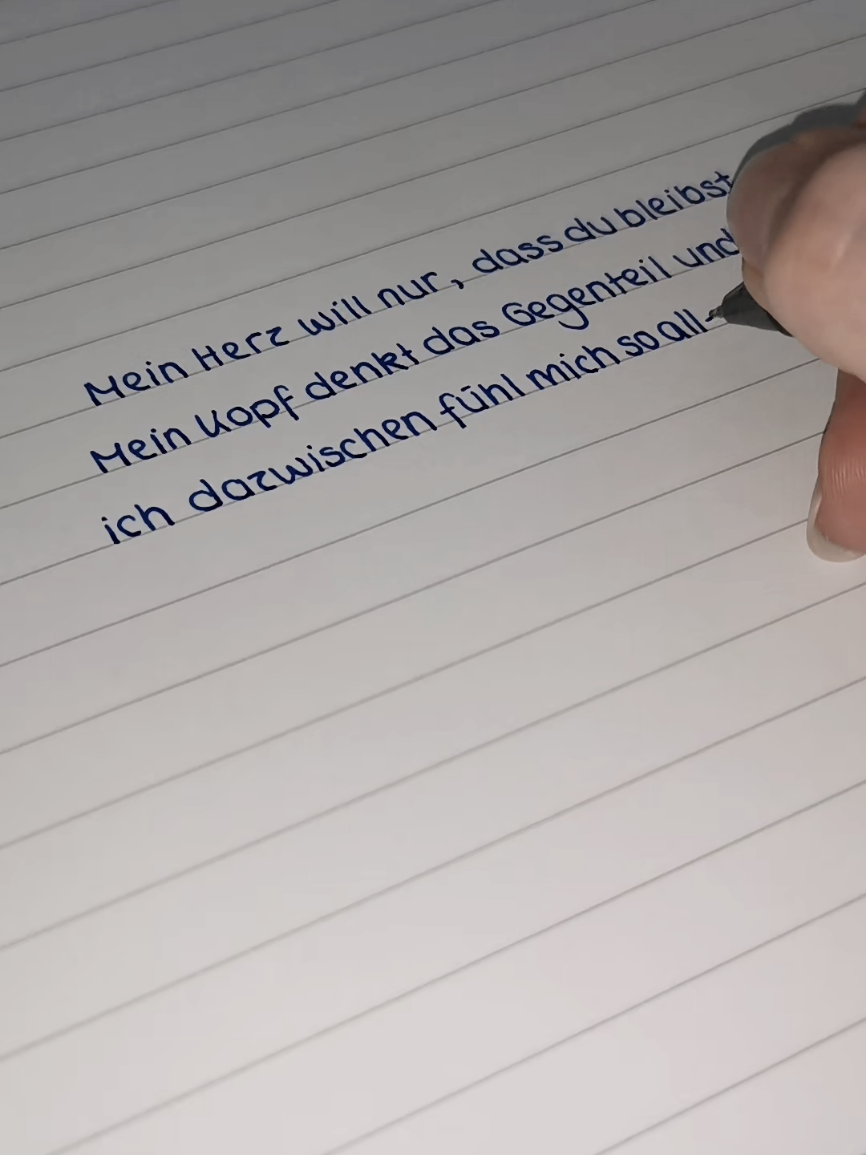 Mein Herz will nur, dass du bleibst
Mein Kopf denkt das Gegenteil und
ich dazwischen fühl mich so all